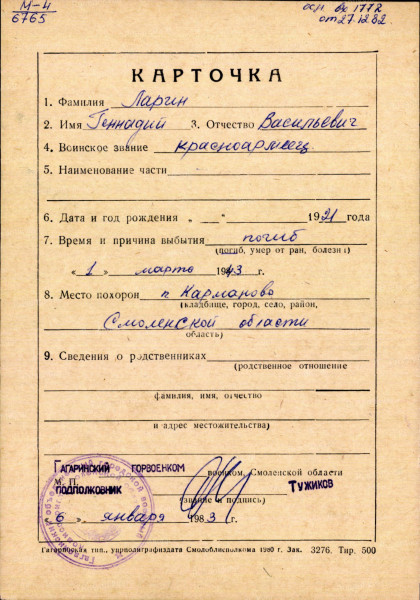 М-4
6765
осн вх 1772
от 27.12.82
КАРТОЧКА
1. Фамилия Ларин
2. Имя Геннадий 3. Отчество Васильевич
4. Воинское звание красноармеец
5. Наименование части
6. Дата и год рождения „ “ 1921 года
7. Время и причина выбытия погиб
(погиб, умер от ран, болезни)
„1“ марта 1943 г.
8. Место похорон п Карманово
(кладбище, город, село, район,
Смоленской области
область)
9. Сведения о родственниках
(родственное отношение
фамилия, имя, отчество
и адрес местожительства)
ГАГАРИНСКИЙ ГОРВОЕНКОМ военком, Смоленской области
М. П.
ПОДПОЛКОВНИК ТУЖИКОВ
(звание и подпись)
„6“ января 1983 г.
Гагаринская тип., управполиграфиздата Смолоблисполкома 1980 г. Зак. 3276. Тир. 500